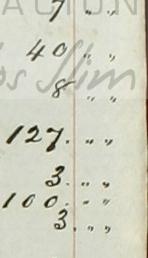 ACION
7 " "
40 " "
os Slim
8 " "
127. " "
3. " "
100. " "
3. " "